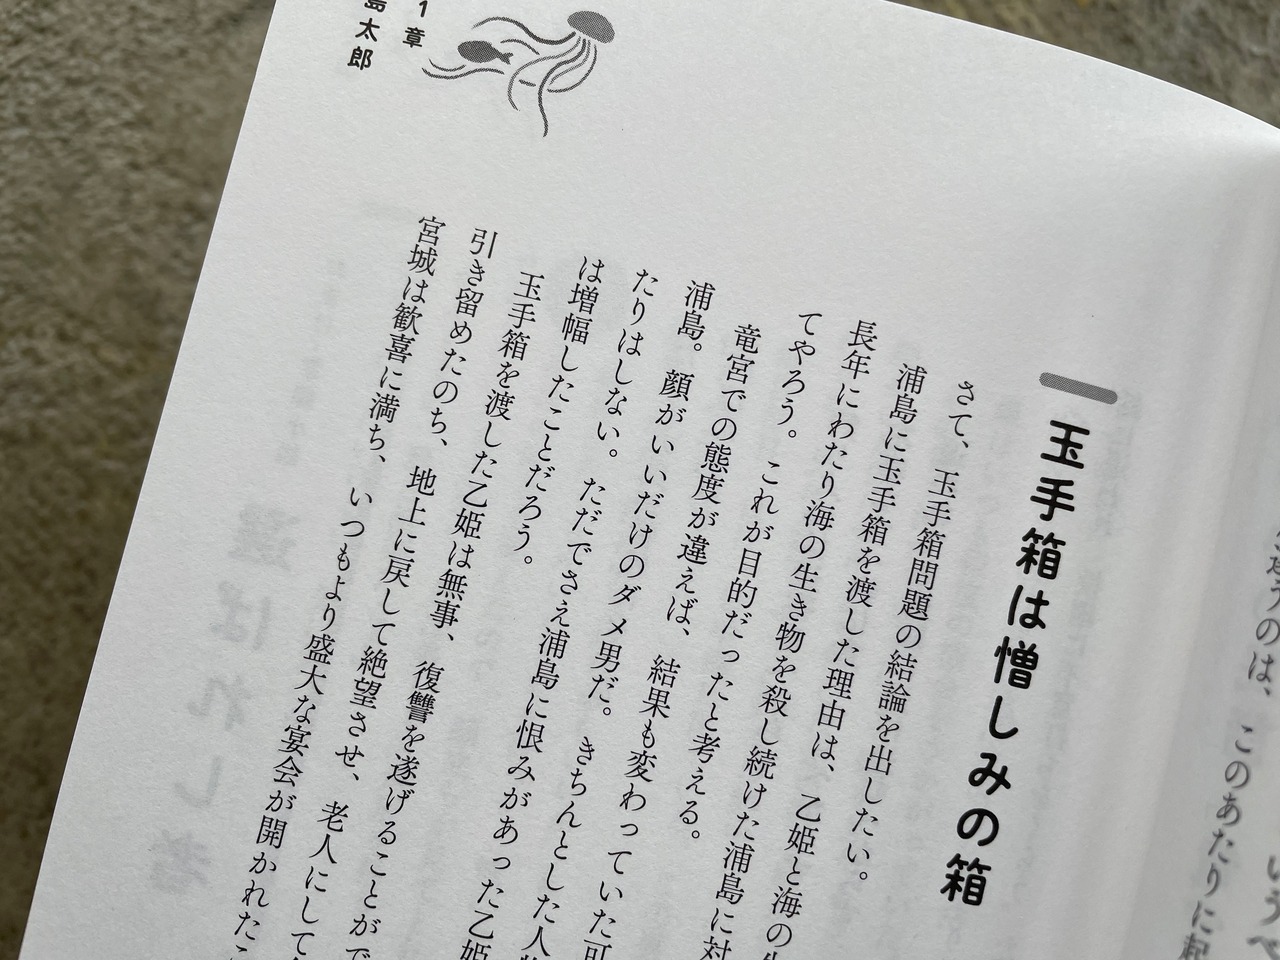 玉手箱は憎しみの箱
さて、玉手箱問題の結論を出したい。
浦島に玉手箱を渡した理由は、乙姫と海の
長年にわたり海の生き物を殺し続けた浦島に対
てやろう。これが目的だったと考える。
竜宮での態度が違えば、結果も変わっていた可
浦島。顔がいいだけのダメ男だ。きちんとした人
たりはしない。ただでさえ浦島に恨みがあった乙姫
は増幅したことだろう。
玉手箱を渡した乙姫は無事、復讐を遂げることがで
引き留めたのち、地上に戻して絶望させ、老人にして
宮城は歓喜に満ち、いつもより盛大な宴会が開かれた
1章
島太郎
うのは、このあたりに起
いう